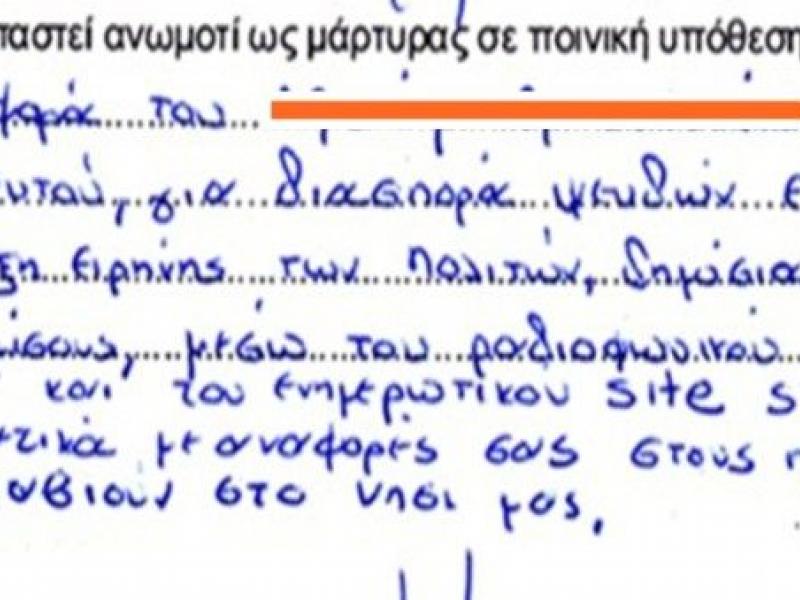 παστεί ανωμοτί ως μάρτυρας σε ποινική υπόθεση
φορά του
αυτού, για διασπορά ψευδών
ξη ειρήνης των πολιτών, δημόσια
μίσους, μέσω του ραδιοφωνικού
και του ενημερωτικού site s
τικά με αναφορές σας στους
αβιούν στο νησί μας,